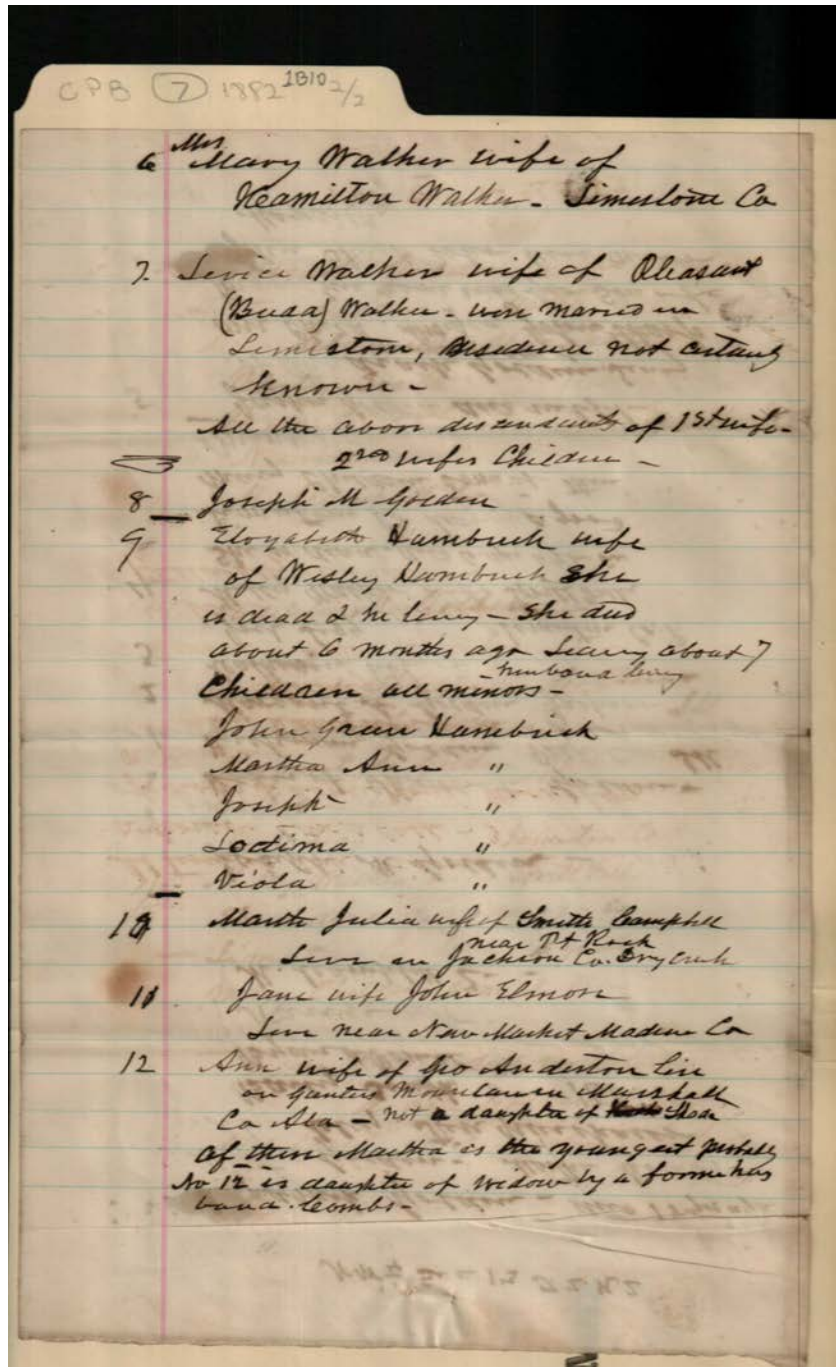 CPB 7 1882 1B10 2/2
6 Mrs Mary Walker wife of
Hamilton Walker - Limestone Co
7. Levica Walker wife of Pleasant
(Buda) Walker - were married in
Limestone, Residence not certainly
known -
All the above descendants of 1st wife -
2nd wifes Children -
8 Joseph M Golden
9 Elizabeth Hambrick wife
of Wesley Hambrick She
is dead & he living - She died
about 6 months ago Leaving about 7
husband living
Children all minors -
John Green Hambrick
Martha Ann "
Joseph "
Loctima "
Viola "
10 Marth Julia wife of Smith Campbell
near Pt Rock
Live in Jackson Co. Dry Creek
11 Jane wife John Elmore
Live near New Market Madison Co
12 Ann wife of Geo Anderton Live
on Gunters Mountain in Marshall
Co Ala - not a daughter of
Of these Martha is the youngest probably
No 12 is daughter of widow by a former hus
band. Combs -